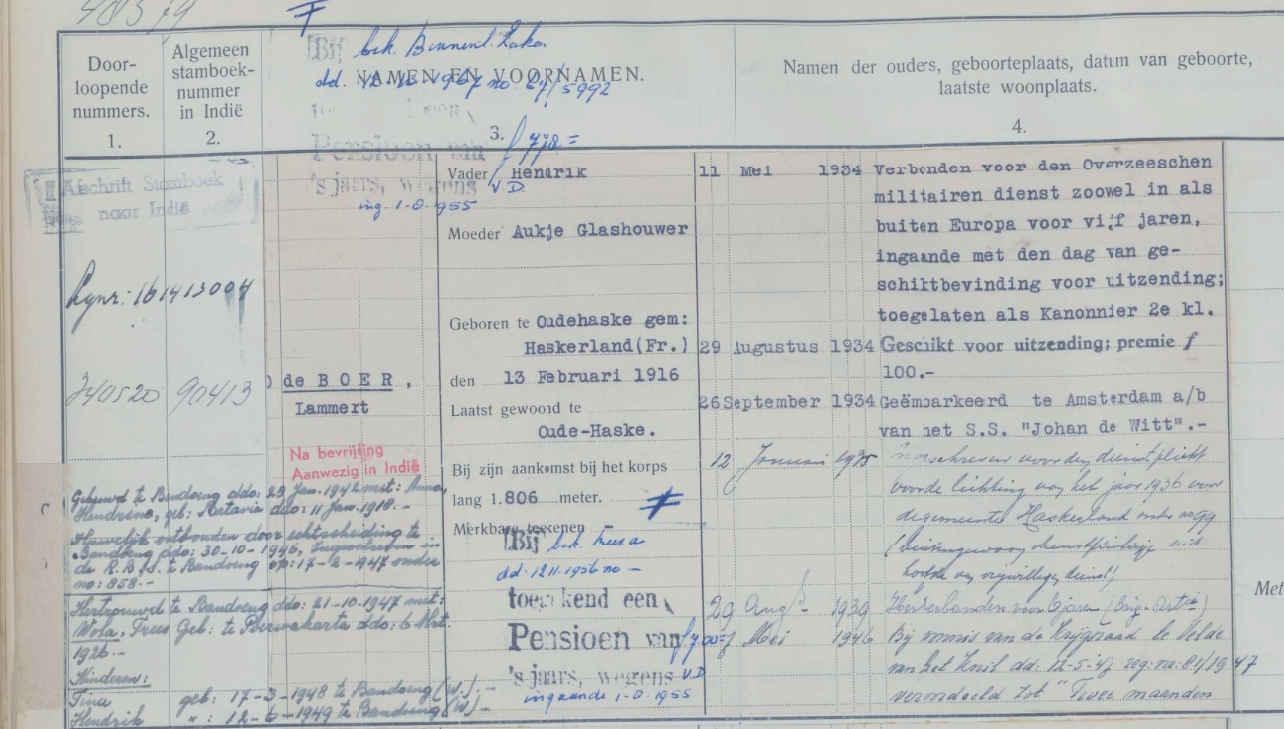 48579
Bij bek. Binnenl. Zaken
dd. no. 67/5992
Door-
loopende
nummers.
1.
Algemeen
stamboek-
nummer
in Indië
2.
NAMEN EN VOORNAMEN.
3.
Pensioen van
's jaars, wegens V.D.
ing. 1-8-1955
Namen der ouders, geboorteplaats, datum van geboorte,
laatste woonplaats.
4.
Afschrift Stamboek
naar Indië
Rynr: 161413004
240520 90413
de BOER,
Lammert
Na bevrijding
Aanwezig in Indië
Gehuwd te Bandoeng ddo: 23 Jan. 1942 met: Anna,
Hendrina, geb: Batavia ddo: 11 Jan. 1918.-
Huwelijk ontbonden door echtscheiding te
Bandoeng ddo: 30-10-1946,
de R.B.S. te Bandoeng op: 17-2-1947 onder
no: 858.-
Hertrouwd te Bandoeng ddo: 21-10-1947 met:
Wola, Trees Geb: te Poerwakarta ddo: 6
1926.-
Kinderen:
Tina geb: 17-3-1948 te Bandoeng (W).-
Hendrik " : 12-6-1949 te Bandoeng (W).-
Vader Hendrik
Moeder Aukje Glashouwer
Geboren te Oudehaske gem:
Haskerland(Fr.)
den 13 Februari 1916
Laatst gewoond te
Oude-Haske.
Bij zijn aankomst bij het korps
lang 1.806 meter.
Merkbare teekenen -
Bij bek.
dd. 12-11-1956 no -
toegekend een
Pensioen van
's jaars, wegens V.D
ingaande 1-8-1955
11 Mei 1934 Verbonden voor den Overzeeschen
militairen dienst zoowel in als
buiten Europa voor vijf jaren,
ingaande met den dag van ge-
schiktbevinding voor uitzending;
toegelaten als Kanonnier 2e kl.
29 Augustus 1934 Geschikt voor uitzending; premie f
100.-
26 September 1934 Geëmbarkeerd te Amsterdam a/b
van het S.S. "Johan de Witt".-
12 Januari 1935 Inschreven voor den dienstplicht
voor de lichting van het jaar 1936 voor
de gemeente Haskerland onder no 99
(buitengewoon dienstplichtig uit
hoofde van vrijwillige dienst)
29 Augs. 1939 Herverbonden voor
7 Mei 1946 Bij vonnis van de Krijgsraad te Velde
van het Knil dd: 12-5-47 reg: no: 81/1947
veroordeeld tot "Twee maanden
Met